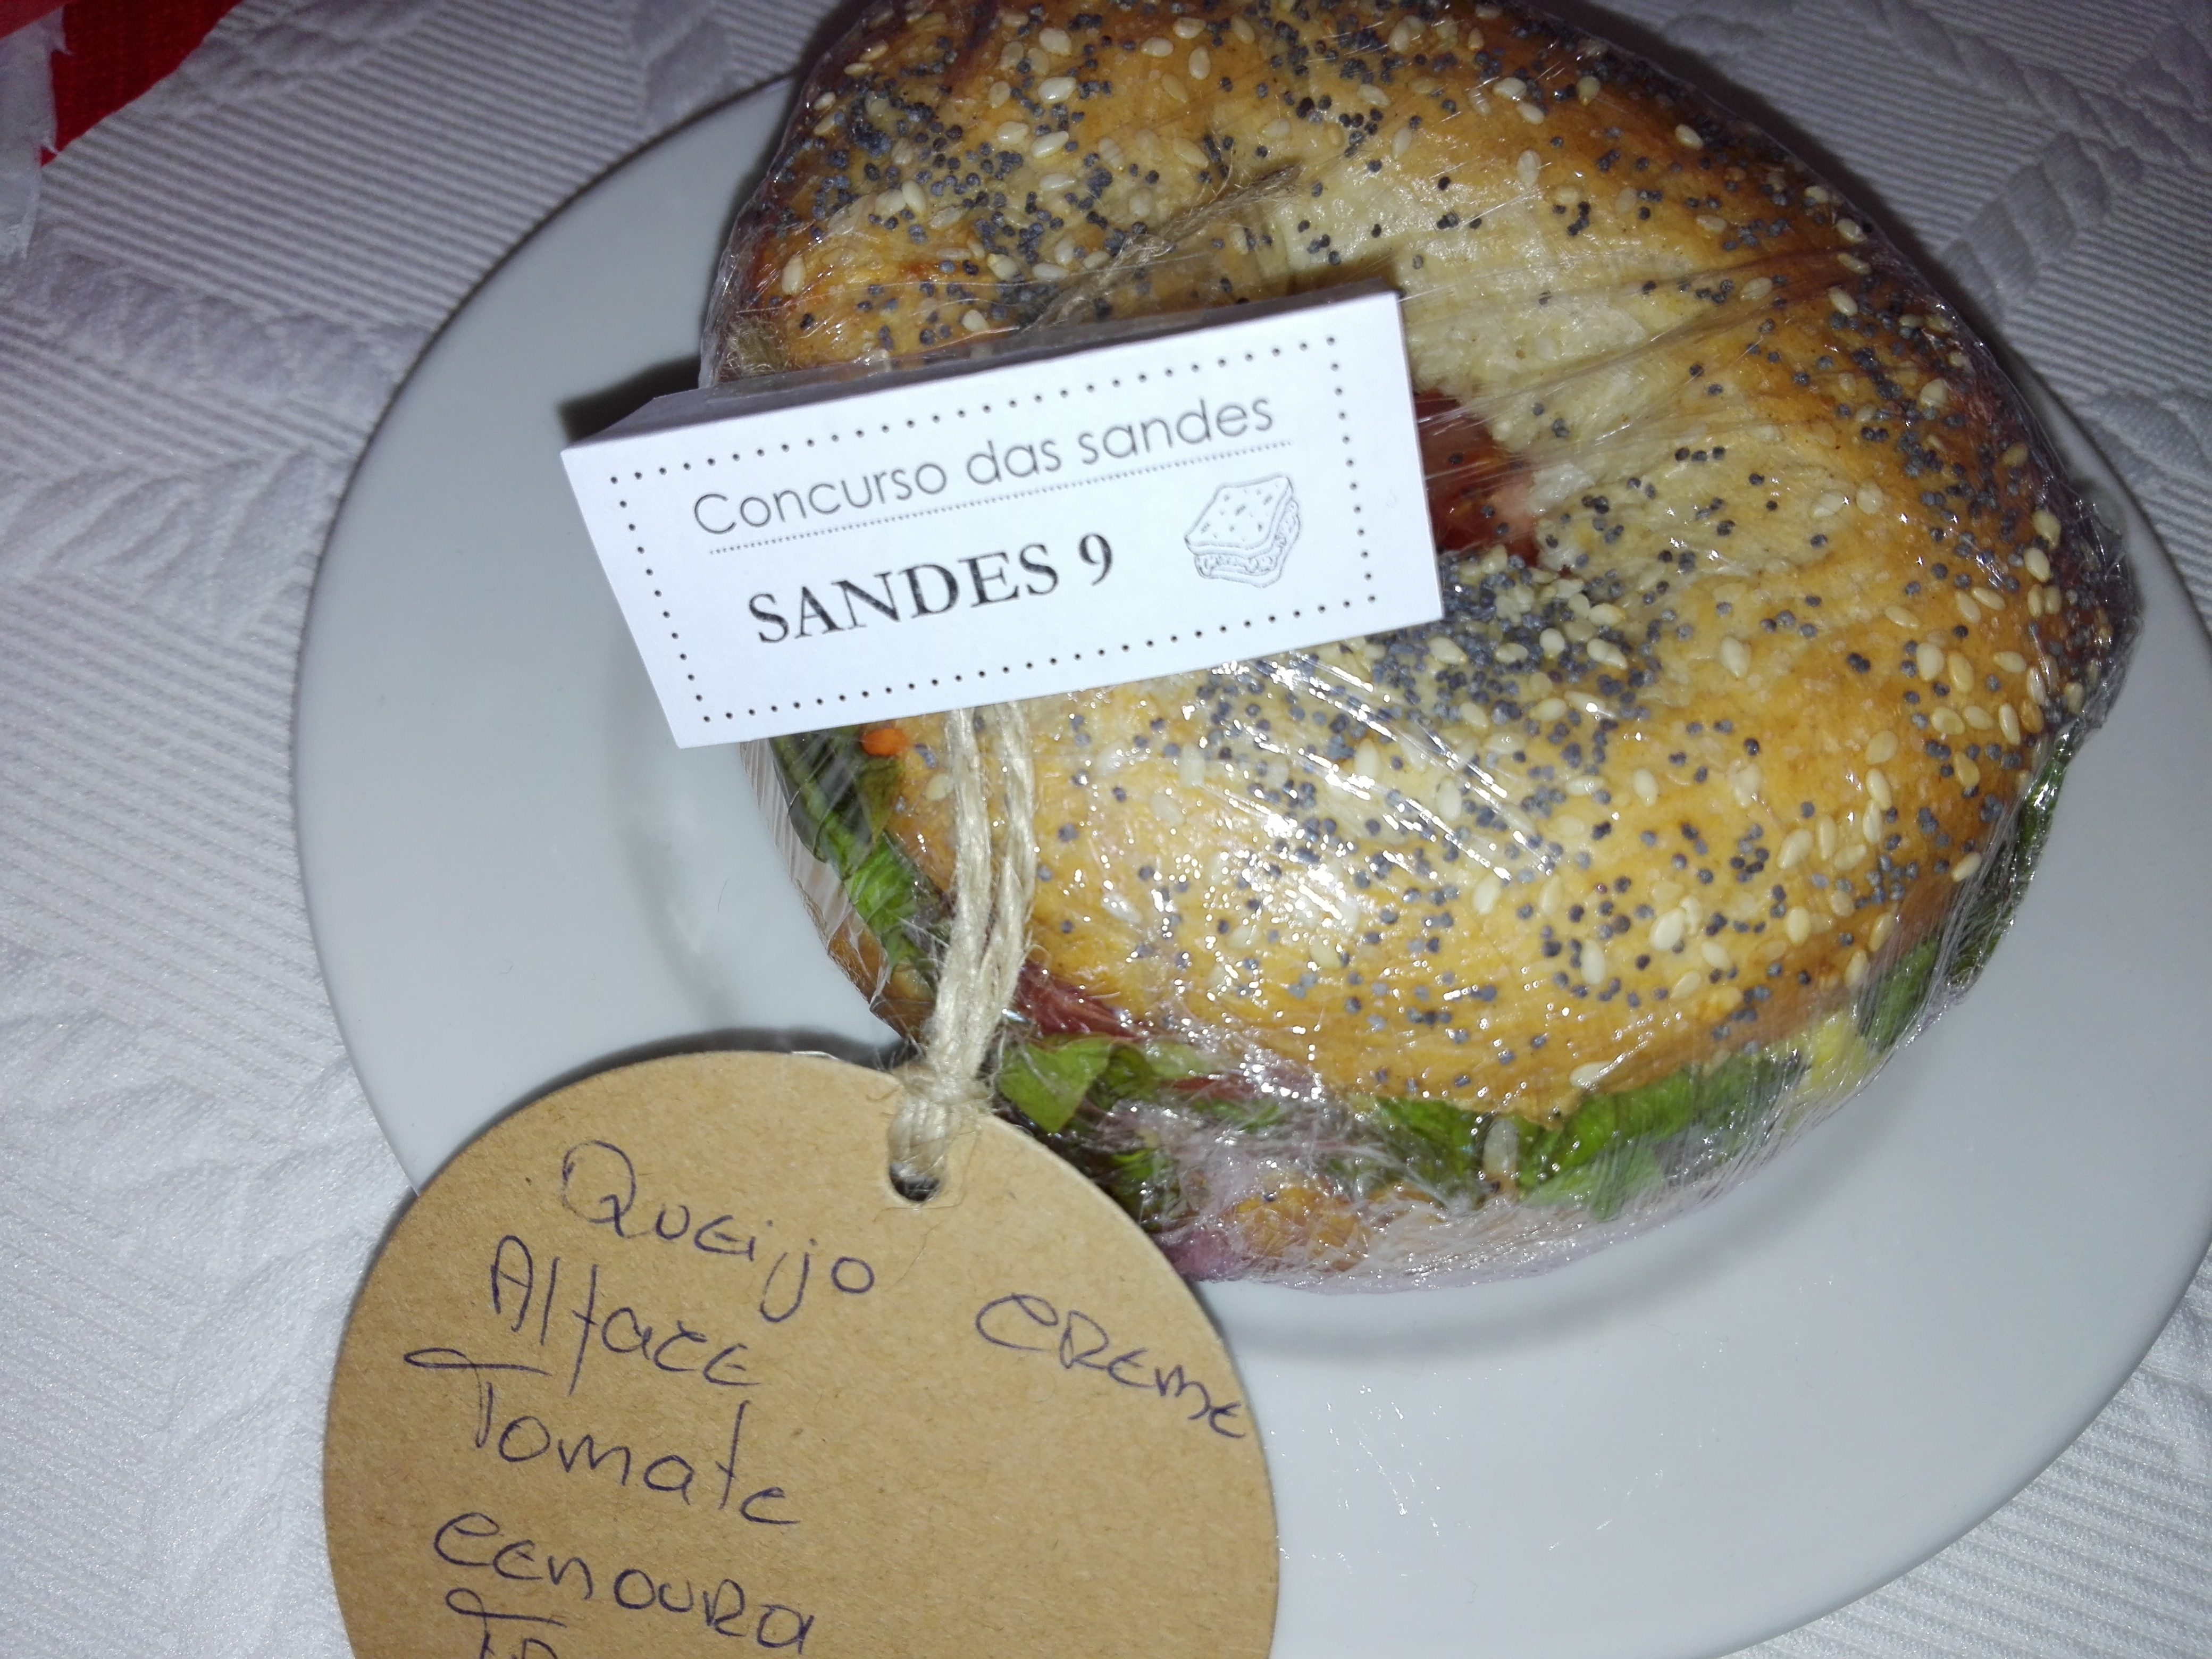 Concurso das sandes
SANDES 9
Queijo creme
Alface
Tomate
cenoura